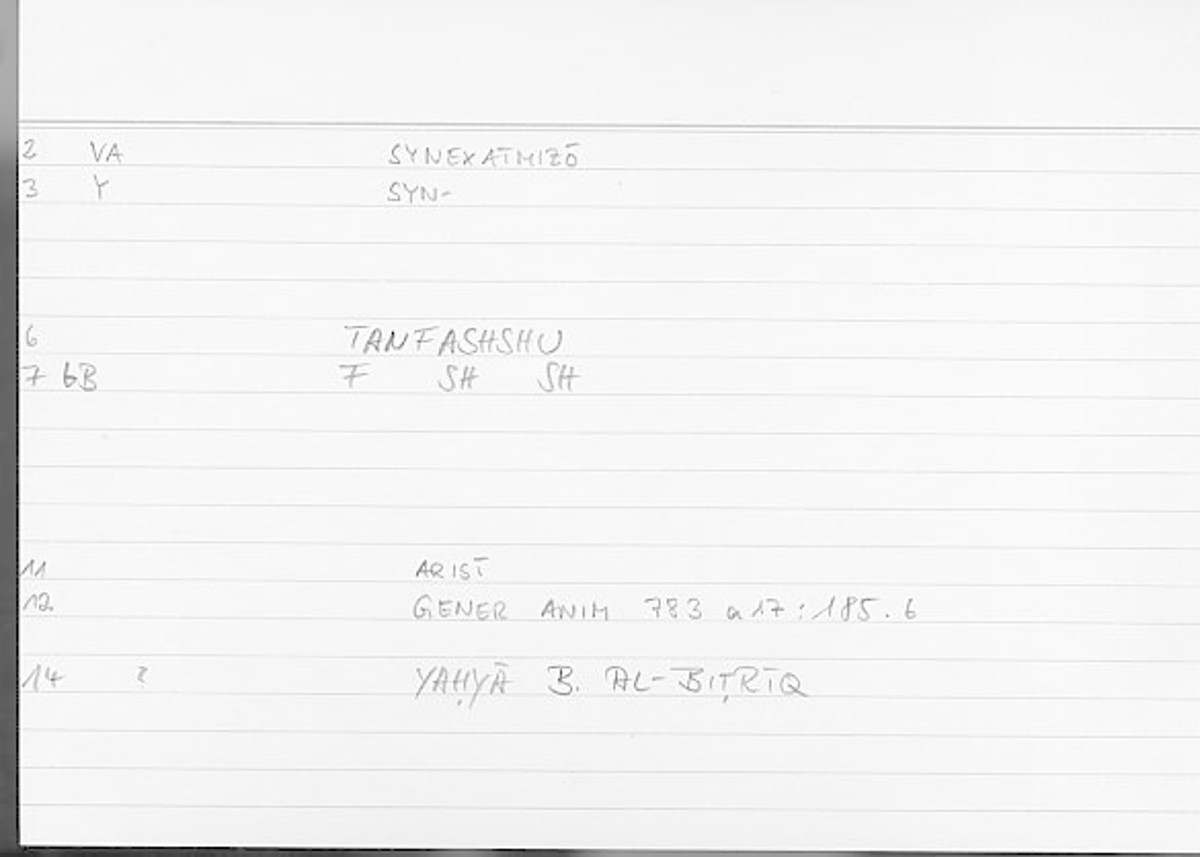 2 VA SYNEXATMIZŌ
3 Y SYN-
6 TANFASHSHU
7 6B F SH SH
11 ARIST
12 GENER ANIM 783 a 17 : 185.6
14 ? YAḤYĀ B. AL-BIṬRĪQ